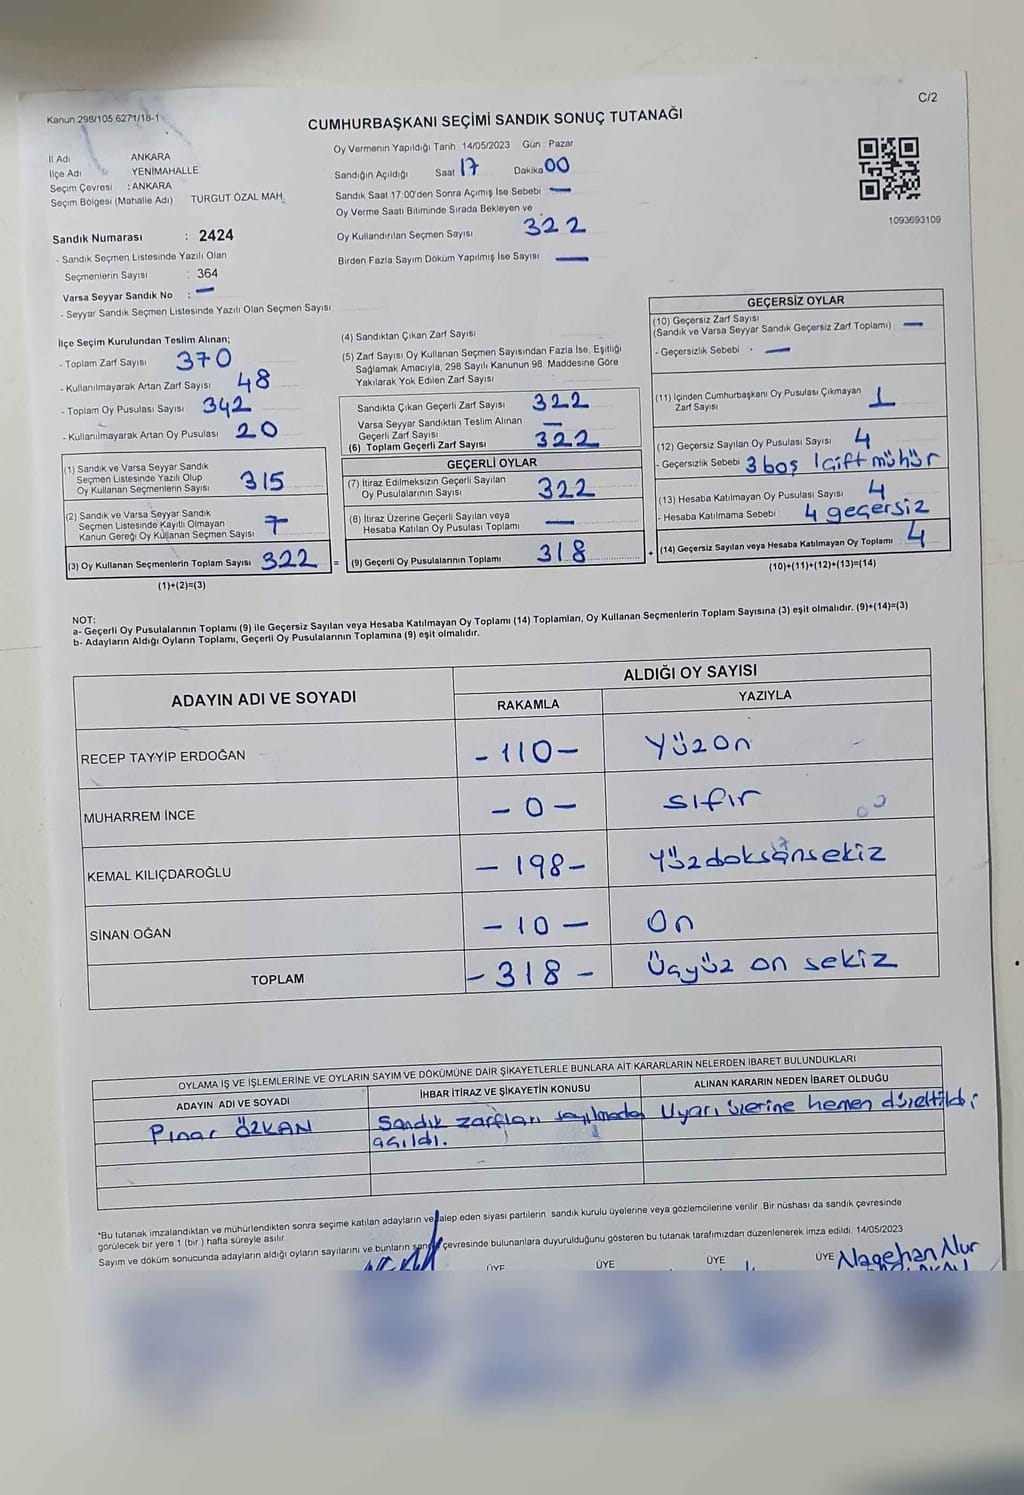 C/2
Kanun 298/105,6271/18-1
CUMHURBAŞKANI SEÇİMİ SANDIK SONUÇ TUTANAĞI
İl Adı ANKARA
İlçe Adı YENİMAHALLE
Seçim Çevresi : ANKARA
Seçim Bölgesi (Mahalle Adı) TURGUT ÖZAL MAH.
Sandık Numarası : 2424
- Sandık Seçmen Listesinde Yazılı Olan
Seçmenlerin Sayısı : 364
Varsa Seyyar Sandık No : —
- Seyyar Sandık Seçmen Listesinde Yazılı Olan Seçmen Sayısı
Oy Vermenin Yapıldığı Tarih 14/05/2023 Gün Pazar
Sandığın Açıldığı Saat 17 Dakika 00
Sandık Saat 17:00'den Sonra Açımış İse Sebebi —
Oy Verme Saati Bitiminde Sırada Bekleyen ve
Oy Kullandırılan Seçmen Sayısı 322
Birden Fazla Sayım Döküm Yapılmış İse Sayısı —
1093693109
İlçe Seçim Kurulundan Teslim Alınan;
- Toplam Zarf Sayısı 370
- Kullanılmayarak Artan Zarf Sayısı 48
- Toplam Oy Pusulası Sayısı 342
- Kullanılmayarak Artan Oy Pusulası 20
(1) Sandık ve Varsa Seyyar Sandık
Seçmen Listesinde Yazılı Olup
Oy Kullanan Seçmenlerin Sayısı 315
(2) Sandık ve Varsa Seyyar Sandık
Seçmen Listesinde Kayıtlı Olmayan
Kanun Gereği Oy Kullanan Seçmen Sayısı 7
(3) Oy Kullanan Seçmenlerin Toplam Sayısı 322 =
(1)+(2)=(3)
(4) Sandıktan Çıkan Zarf Sayısı
(5) Zarf Sayısı Oy Kullanan Seçmen Sayısından Fazla İse, Eşitliği
Sağlamak Amacıyla, 298 Sayılı Kanunun 98. Maddesine Göre
Yakılarak Yok Edilen Zarf Sayısı
Sandıkta Çıkan Geçerli Zarf Sayısı 322
Varsa Seyyar Sandıktan Teslim Alınan
Geçerli Zarf Sayısı —
(6) Toplam Geçerli Zarf Sayısı 322
GEÇERLİ OYLAR
(7) İtiraz Edilmeksizin Geçerli Sayılan
Oy Pusulalarının Sayısı 322
(8) İtiraz Üzerine Geçerli Sayılan veya
Hesaba Katılan Oy Pusulası Toplamı —
(9) Geçerli Oy Pusulalarının Toplamı 318 +
GEÇERSİZ OYLAR
(10) Geçersiz Zarf Sayısı
(Sandık ve Varsa Seyyar Sandık Geçersiz Zarf Toplamı) —
- Geçersizlik Sebebi : —
(11) İçinden Cumhurbaşkanı Oy Pusulası Çıkmayan
Zarf Sayısı 1
(12) Geçersiz Sayılan Oy Pusulası Sayısı 4
- Geçersizlik Sebebi 3 boş 1 çift mühür
(13) Hesaba Katılmayan Oy Pusulası Sayısı 4
- Hesaba Katılmama Sebebi 4 geçersiz
(14) Geçersiz Sayılan veya Hesaba Katılmayan Oy Toplamı : 4
(10)+(11)+(12)+(13)=(14)
NOT:
a- Geçerli Oy Pusulalarının Toplamı (9) ile Geçersiz Sayılan veya Hesaba Katılmayan Oy Toplamı (14) Toplamları, Oy Kullanan Seçmenlerin Toplam Sayısına (3) eşit olmalıdır. (9)+(14)=(3)
b- Adayların Aldığı Oyların Toplamı, Geçerli Oy Pusulalarının Toplamına (9) eşit olmalıdır.
ADAYIN ADI VE SOYADI ALDIĞI OY SAYISI
RAKAMLA YAZIYLA
RECEP TAYYİP ERDOĞAN - 110 - Yüzon
MUHARREM İNCE - 0 - sıfır
KEMAL KILIÇDAROĞLU - 198 - Yüzdoksansekiz
SİNAN OĞAN - 10 - On
TOPLAM - 318 - Üçyüz on sekiz
OYLAMA İŞ VE İŞLEMLERİNE VE OYLARIN SAYIM VE DÖKÜMÜNE DAİR ŞİKAYETLERLE BUNLARA AİT KARARLARIN NELERDEN İBARET BULUNDUKLARI
ADAYIN ADI VE SOYADI İHBAR İTİRAZ VE ŞİKAYETİN KONUSU ALINAN KARARIN NEDEN İBARET OLDUĞU
Pınar ÖZKAN Sandık zarfları sayılmadan Uyarı üzerine hemen düzeltildi
açıldı.
*Bu tutanak imzalandıktan ve mühürlendikten sonra seçime katılan adayların ve talep eden siyasi partilerin sandık kurulu üyelerine veya gözlemcilerine verilir. Bir nüshası da sandık çevresinde
görülecek bir yere 1 (bir) hafta süreyle asılır.
Sayım ve döküm sonucunda adayların aldığı oyların sayılarını ve bunların sandık çevresinde bulunanlara duyurulduğunu gösteren bu tutanak tarafımızdan düzenlenerek imza edildi. 14/05/2023
ÜYE ÜYE ÜYE ÜYE Nagehan Nur